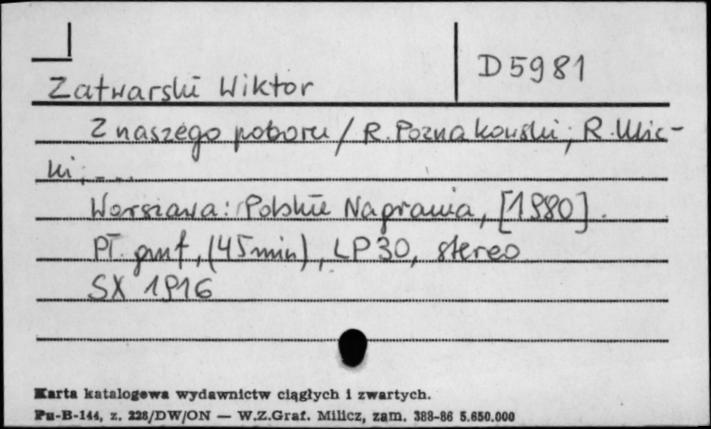 D 5981
Zatwarski Wiktor
Z naszego poboru / R. Poznakowski; R. Ulic-
ki; ...
Warszawa: Polskie Nagrania, [1980].
Pł. gmf, (45 min), LP 30, stereo
SX 1916
Karta katalogowa wydawnictw ciągłych i zwartych.
Pu-B-144, z. 228/DW/ON — W.Z.Graf. Milicz, zam. 388-86 5.650.000